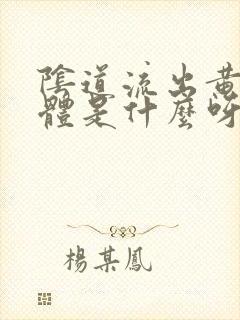 陰道流出黃
體是什麼呀
楊某鳳